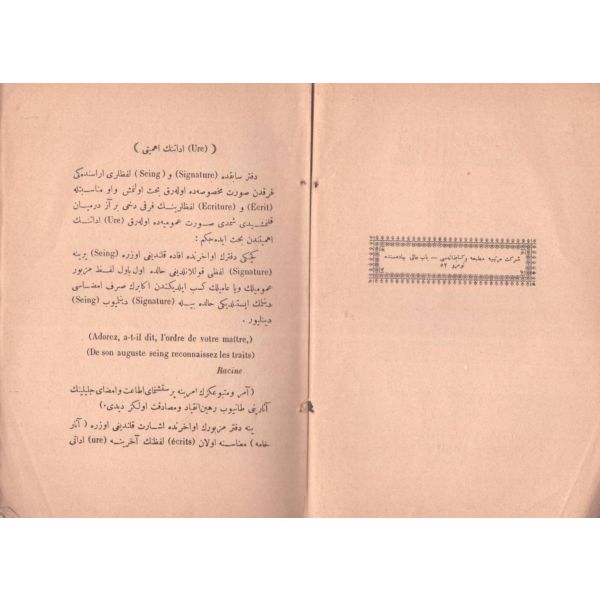 ( (Ure) اداتنك اهميتى )
دفتر سابقده (Signature) و (Seing) لفظلرى اراسنده‌كى
فرقدن صورت مخصوصه‌ده اوله‌رق بحث اولنمش واو مناسبتله
(Ecrit) و (Ecriture) لفظلرينك فرقى دخى بر آز درميان
قلنمشيدى شمدى صورت عموميه‌ده اوله‌رق (Ure) اداتنك
اهميتندن بحث ايده‌جكم :
كچنكى دفترك اواخرنده افاده قلنديغى اوزره (Seing) يرينه
(Signature) لفظى قوللانلديغى حالده اول باول لفظ مزبور
عموميلك ويا عاميلك كسب ايلديكندن اكابرك صرف امضاسى
ديمك ايستلديكى حالده بيله (Signature) دينلميوب (Seing)
دينليور .
(Adorez, a-t-il dit, l'ordre de votre maître,)
(De son auguste seing reconnaissez les traits)
Racine
(آمر ومتبوعكزك امرينه پرستشنماى اطاعت وامضاى جليلينك
آثارينى طانيوب رهين انقياد ومصادقت اولكز ديدى.)
ينه دفتر مزبورك اواخرنده اشارت قلنديغى اوزره ( آثار
خامه ) معناسنه اولان (écrits) لفظنك آخرينه (ure) اداتى
شركت مرتبيه مطبعه وكتابخانه‌سى — باب عالى جاده‌سنده
نومرو ٥٢